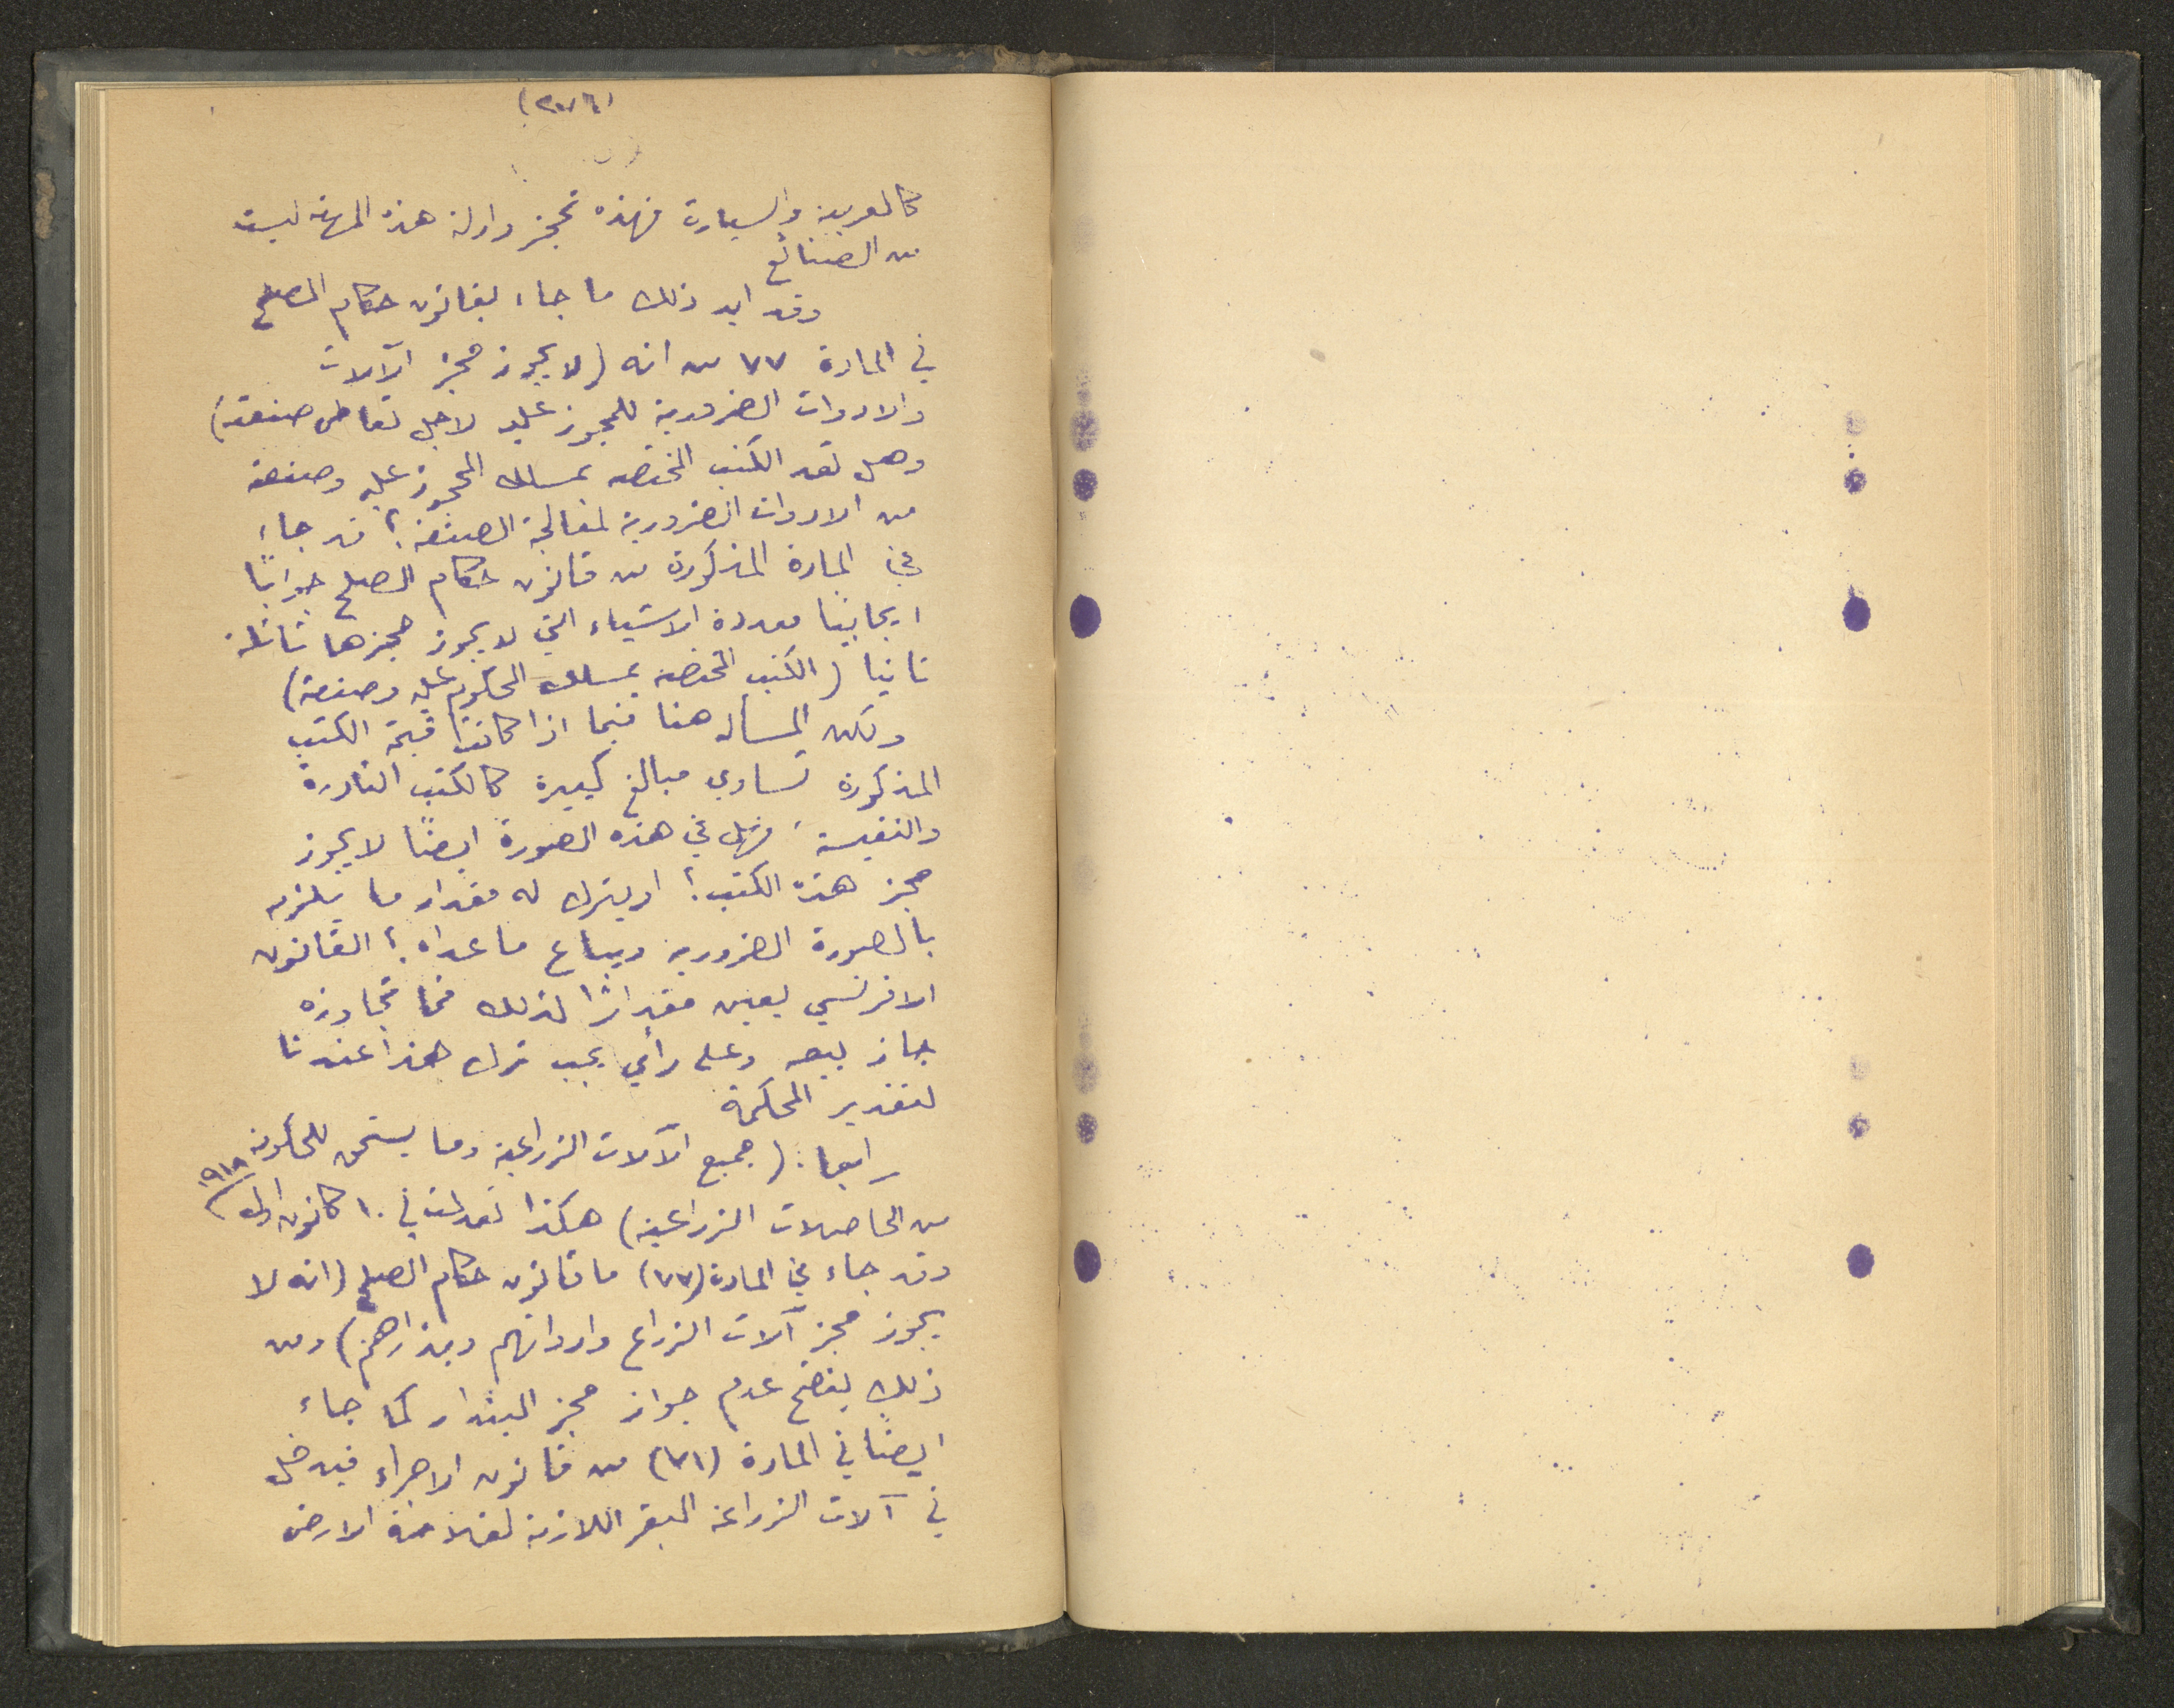 كالعربية والسيارت فهذه تحجز واولة هذه المهنه ليست
من الصنائع
وقد ايد ذلك ما جاء بقانون حكام الصلح
في المادة ٧٧ من انه (لا يجوز حجز الآلات
والادوات الضرورية للمحجوز عليه لاجل تعاطى صنعته)
وهل تعد الكتب المختصه بمسلك المحجوز عليه وصنعته
من الادوات الضرورية لمعالجة الصنعة؟ قد جاء
في المادة المذكورة من قانون حكام الصلح جوابًا
ايجابيا معددة الاشياء التي لا يجوز حجزها
ثانيا (الكتب المختصه بمسلك المحكوم عليه وصنعته)
ولكن المسأله هنا فيما اذا كانت قيمة الكتب
المذكورة تساوي مبالغ كبيرة كالكتب النادرة
والنفيسة، فهل في هذه الصورة ايضًا لا يجوز
حجز هذه الكتب؟ او يترك له مقدار ما يلزمه
بالصورة الضرورية ويباع ما عداه؟ القانون
الافرنسي يعين مقدارًا لذلك فما تجاوزه
جاز بيعه وعلى رأي يجب ترك هذا عندنا
لتقدير المحكمة
رابعا: (جميع الآلات الزراعية وما يستحق للحكومة
من الحاصلات الزراعية) هكذا تعدلت في ١٠ كانون اول ٩١٨
وقد جاء في المادة (٧٧) ما قانون حكام الصلح (انه لا
يجوز حجز آلات الزراع وادواتهم وبذراهم) ومن
ذلك يتضح عدم جواز حجز البذار كما جاء
ايضًا في المادة (٧١) من قانون الاجراء فيدخل
في آلات الزراعة البقر اللازمة لفلاحة الارض